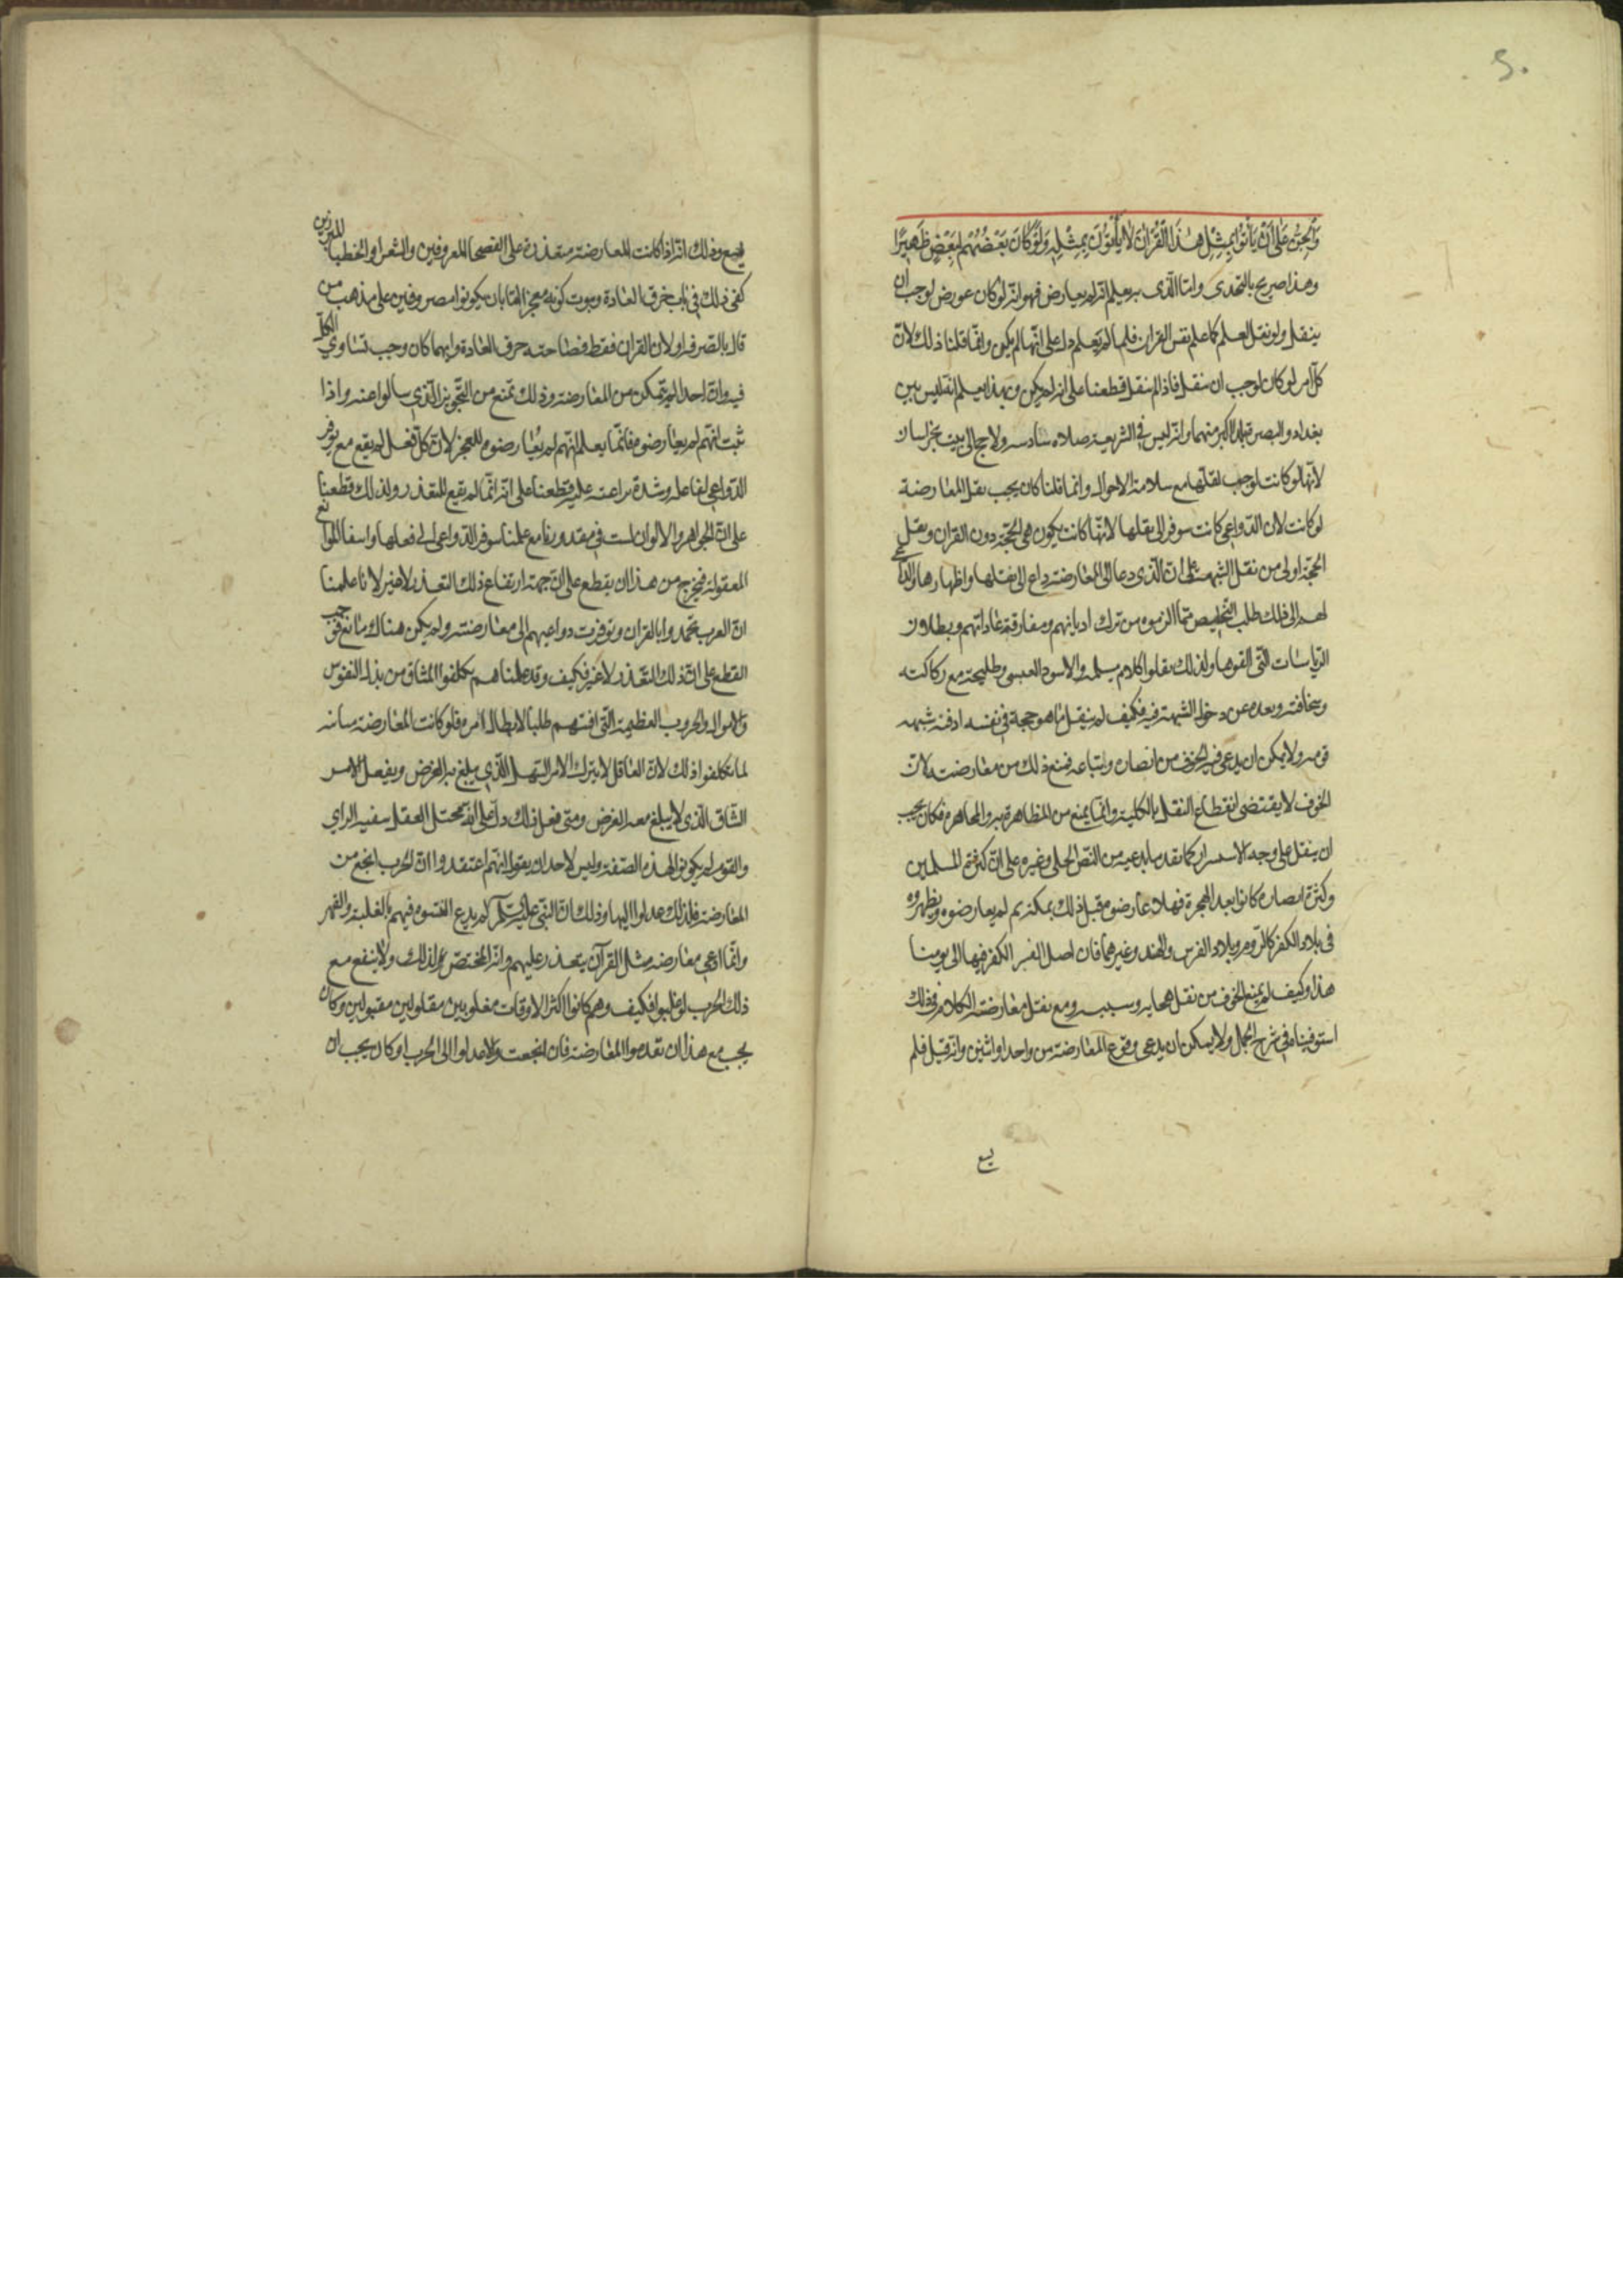 ٥٠
وَالْجِنُّ عَلَى أَنْ يَأْتُوا بِمِثْلِ هٰذَا الْقُرْآنِ لَا يَأْتُوْنَ بِمِثْلِهِ وَلَوْ كَانَ بَعْضُهُمْ لِبَعْضٍ ظَهِيْرًا
وهذا صريح بالتحدى واما الّذى به يعلم انّه لم يعارض فهو انّه لو كان عورض لوجب ان
ينقل ولو نقل لعلم كما علم نفس القران فلما لم يعلم دل على انّها لم يكن وانّما قلنا ذلك لانّ
كلّ امر لو كان لوجب ان ينقل فاذا لم ينقل قطعنا على انه لم يكن وبهذا يعلم انه ليس بين
بغداد والبصرة بلد اكبر منهما وانّه ليس فى الشريعة صلاه سادسه ولا حج الى بيت بخراسان
لانّها لو كانت لوجب نقلها مع سلامة الاحوال وانما قلنا كان يجب نقل المعارضة
لو كانت لان الدّواعى كانت تتوفر الى نقلها لانّها كانت يكون هى الحجّة دون القران ونقل
الحجّة اولى من نقل الشبهة على ان الّذى دعا الى المعارضة داع الى نقلها واظهارها والداعى
لهم الى ذلك طلب التخليص ممّا الزموه من ترك اديانهم ومفارقة عاداتهم وبطلان
الرّياسات الّتى القوها ولذلك نقلوا كلام مسيلمة والاسود العبسى وطليحة مع ركاكته
وسخافته وبعده عن دخول الشبهة فيه فكيف لم ينقل ما هو حجة فى نفسه او فيه شبهه
قويه ولا يمكن ان يدعى فيه الخوف من انصاره واتباعه فمنع ذلك من معارضته لانّ
الخوف لا يقتضى انقطاع النقل بالكلية وانّما يمنع من المظاهرة به والمجاهرة فكان يجب
ان ينقل على وجه الاستسرار كما نقد ما يدعيه من النصّ الجلى وغيره على انّ كثرة المسلمين
وكثرة انصاره كانوا بعد الهجرة فهلا عارضوه قبل ذلك بمكة ثم لم يعارضوه ويظهروه
فى بلاد الكفر كالرّوم وبلاد الفرس والهند وغيرهما فان اصل الكفر فيها الى يومنا
هذا وكيف لم يمنع الخوف من نقل هجايه وسبه ومنع نقل معارضته الكلام فى ذلك
استوفيناه فى شرح الجمل ولا يمكن ان يدعى وقوع المعارضة من واحد او اثنين وانه قتل فلم
يقع
يقع وذلك انّه اذا كانت المعارضة متعذرة على الفصحا المعروفين والشعرا والخطبا المبرزين
كفى ذلك فى باب خرق العادة وثبوت كونه معجزا امّا بان يكونوا مصروفين على مذهب من
قال بالصرفة او لان القران فقط فصاحته خرق العادة وايهما كان وجب تساوي الكل
فيه وانّ احدا لم يتمكن من المعارضة وذلك يمنع من التّجويز الّذي سالوا عنه واذا
ثبت انّهم لم يعارضوه فانّما يعلم انّهم لم يُعارضوه للعجز لانّ كلّ فعل لم يقع مع توفر
الدّواعى لفاعله وشدة تداعيه عليه قطعنا على انّه انّما لم يقع للتعذر ولذلك قطعنا
على انّ الجواهر والالوان ليست فى مقدورنا مع علمنا بتوفر الدّواعى الى فعلها وانتفا الموانع
المعقولة فيخرج من هذا ان يقطع على انّ جهة ارتفاع ذلك التعذر لا غير لانا علمنا
انّ العرب تحدوا بالقران وتوفرت دواعيهم الى معارضته ولم يكن هناك مانع فوجب
القطع على انّ ذلك للتعذر لا غير فكيف وقد علمناهم تكلفوا المشاق من بذل النفوس
والاموال والحروب العظيمة الّتى افنتهم طلبا لابطال امره فلو كانت المعارضة متاتيه
لما تكلفوا ذلك لانّ العاقل لا يترك الامر السّهل الّذي يبلغ به الغرض ويفعل الامر
الشّاق الّذى لا يبلغ معه الغرض ومتى فعل ذلك دلّ على انّه مختل العقل سفيه الراي
والقوم لم يكونوا بهذه الصّفة وليس لاحد ان يقول انّهم اعتقدوا انّ الحرب انجع من
المعارضة فلذلك عدلوا اليها وذلك انّ النّبى عليه السّلم لم يدع النبوه فيهم بالغلبة والقهر
وانّما ادعى معارضة مثل القرآن يتعذر عليهم وانّه المختصّ بذلك ولا ينفع مع
ذلك الحرب لو غلبوا فكيف وهم كانوا اكثر الاوقات مغلوبين مقتولين مقبولين وكان
يجب مع هذا ان تقدموا المعارضة فان انجعت والا عدلوا الى الحرب او كان يجب ان